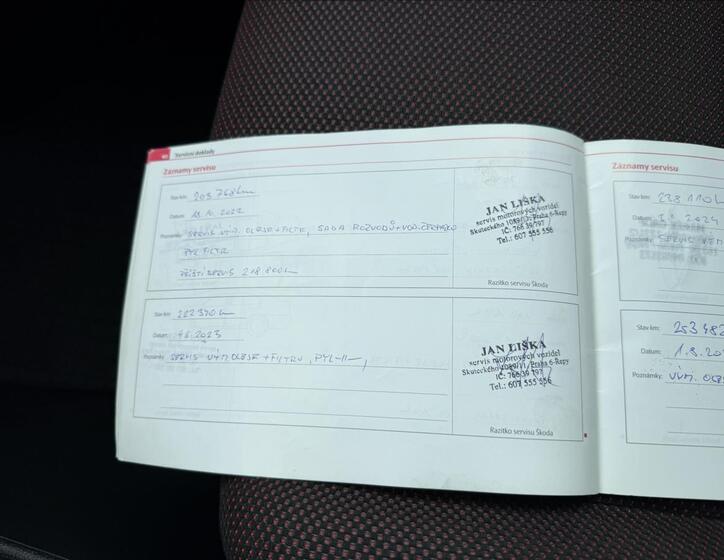 Servisní doklady
Záznamy servisu
Stav km: 203 768 km
Datum: 2022
Poznámky: SERVIS VÝM. OLEJE+FILTR, SADA ROZVODŮ+VOD. ČERPADLO
PYL FILTR
PŘÍŠTÍ SERVIS 218 800 km
JAN LIŠKA
servis motorových vozidel
Skuteckého 1089/11, Praha 6-Řepy
IČ: 766 39 797
Tel.: 607 555 556
Razítko servisu Škoda
Stav km: 222 390 km
Datum: 2023
Poznámky: SERVIS VÝM OLEJE+FILTRU, PYL-II-,
JAN LIŠKA
servis motorových vozidel
Skuteckého 1089/11, Praha 6-Řepy
IČ: 766 39 797
Tel.: 607 555 556
Razítko servisu Škoda
Záznamy servisu
Stav km: 238 110 k
Datum: 2024
Poznámky: SERVIS VÝM
Stav km: 253 482
Datum: 1.9.20
Poznámky: VÝM. OLE